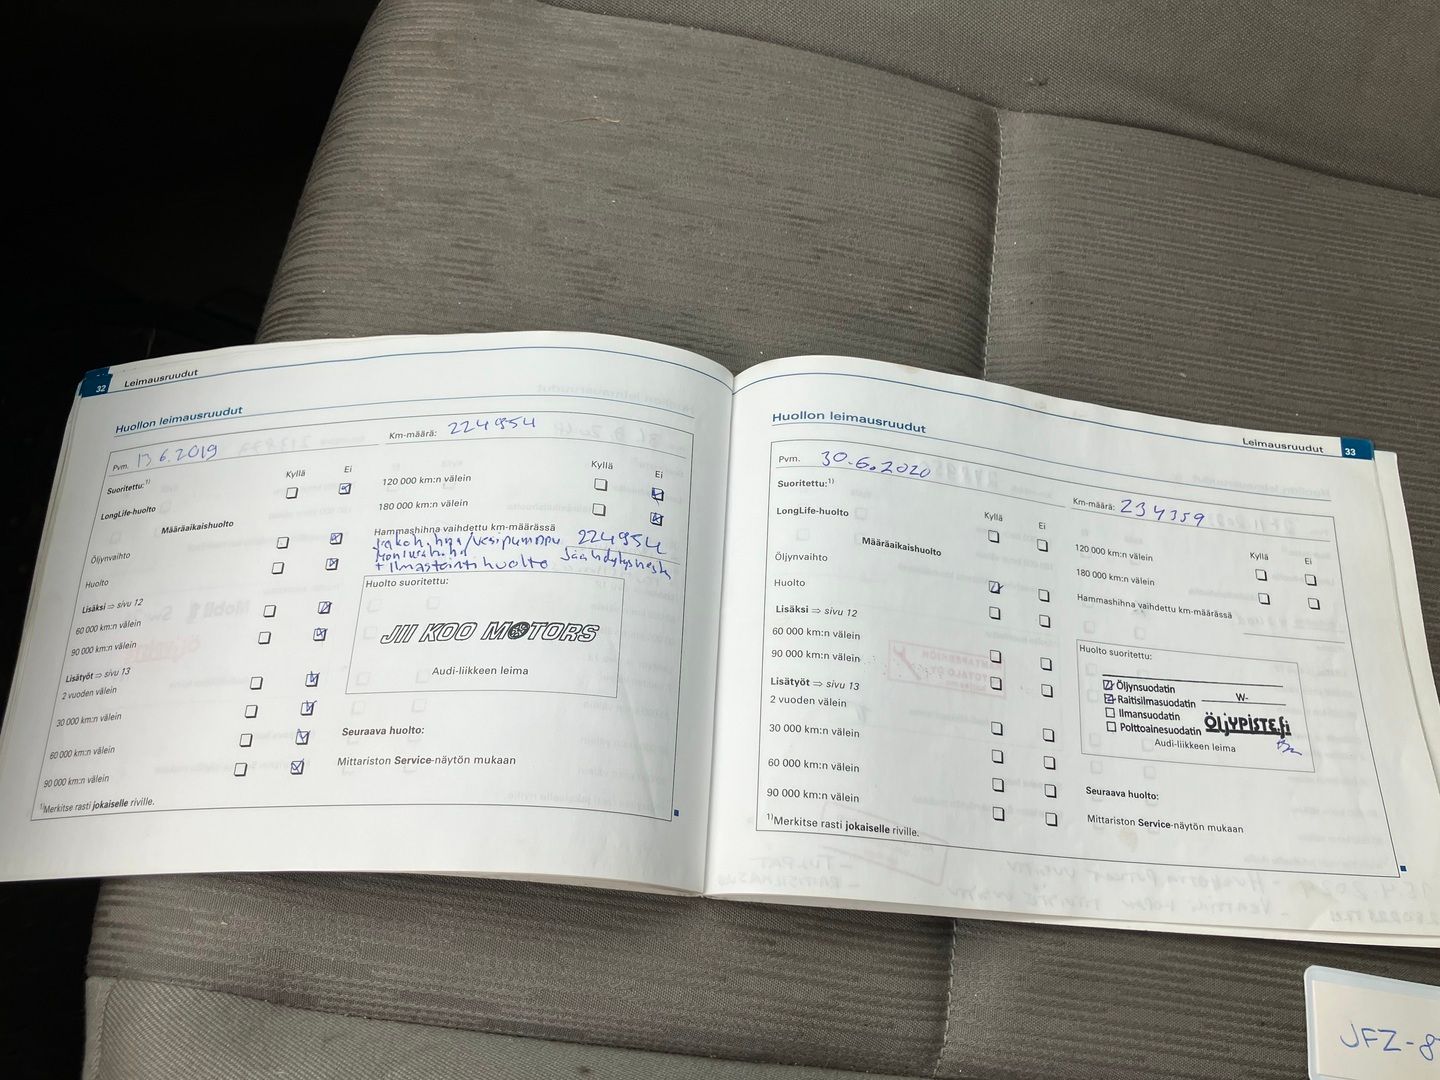 32 Leimausruudut
Huollon leimausruudut
Pvm. 13.6.2019 Km-määrä: 224954
Suoritettu:¹⁾ Kyllä Ei Kyllä Ei
LongLife-huolto
Määräaikaishuolto
Öljynvaihto
Huolto
Lisäksi ⇒ sivu 12
60 000 km:n välein
90 000 km:n välein
Lisätyöt ⇒ sivu 13
2 vuoden välein
30 000 km:n välein
60 000 km:n välein
90 000 km:n välein
¹⁾Merkitse rasti jokaiselle riville.
120 000 km:n välein
180 000 km:n välein
Hammashihna vaihdettu km-määrässä
Jakoh.hna/vesipumppu 224954
+ Ilmastointihuolto
Huolto suoritettu:
JII KOO MOTORS
Audi-liikkeen leima
Seuraava huolto:
Mittariston Service-näytön mukaan
Leimausruudut 33
Huollon leimausruudut
Pvm. 30.6.2020 Km-määrä: 234359
Suoritettu:¹⁾ Kyllä Ei Kyllä Ei
LongLife-huolto
Määräaikaishuolto
Öljynvaihto
Huolto
Lisäksi ⇒ sivu 12
60 000 km:n välein
90 000 km:n välein
Lisätyöt ⇒ sivu 13
2 vuoden välein
30 000 km:n välein
60 000 km:n välein
90 000 km:n välein
¹⁾Merkitse rasti jokaiselle riville.
120 000 km:n välein
180 000 km:n välein
Hammashihna vaihdettu km-määrässä
Huolto suoritettu:
Öljynsuodatin
Raitisilmasuodatin W-
Ilmansuodatin
Polttoainesuodatin ÖLJYPISTE.fi
Audi-liikkeen leima
Seuraava huolto:
Mittariston Service-näytön mukaan
JFZ-8